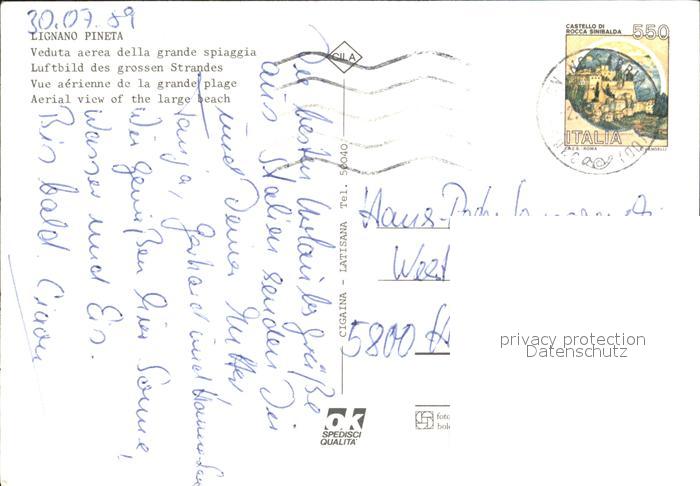 30.07.89
LIGNANO PINETA
Veduta aerea della grande spiaggia
Luftbild des grossen Strandes
Vue aérienne de la grande plage
Aerial view of the large beach
Die besten Urlaubsgrüße
aus Italien senden Dir
und Deiner Mutter
Tanja, Gerhard und
Wir genießen hier Sonne,
Wasser und Eis.
Bis bald. Ciao
CILA
CIGAINA - LATISANA Tel. 50040
CASTELLO DI
ROCCA SINIBALDA
550
ITALIA
I.P.Z.S. ROMA
Hans-
West
5800 H
privacy protection
Datenschutz
ok
SPEDISCI
QUALITA'
foto
bol